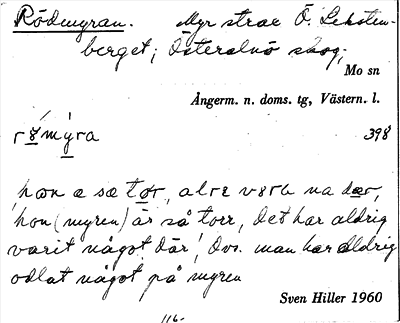 Rödmyran. Myr strax Ö. Leksten-
berget; Österalnö skog;
Mo sn
Ångerm. n. doms. tg, Västern. l.
398
hon (myren) är så torr, det har aldrig
varit något där! Dvs. man har aldrig
odlat något på myren
Sven Hiller 1960
116.